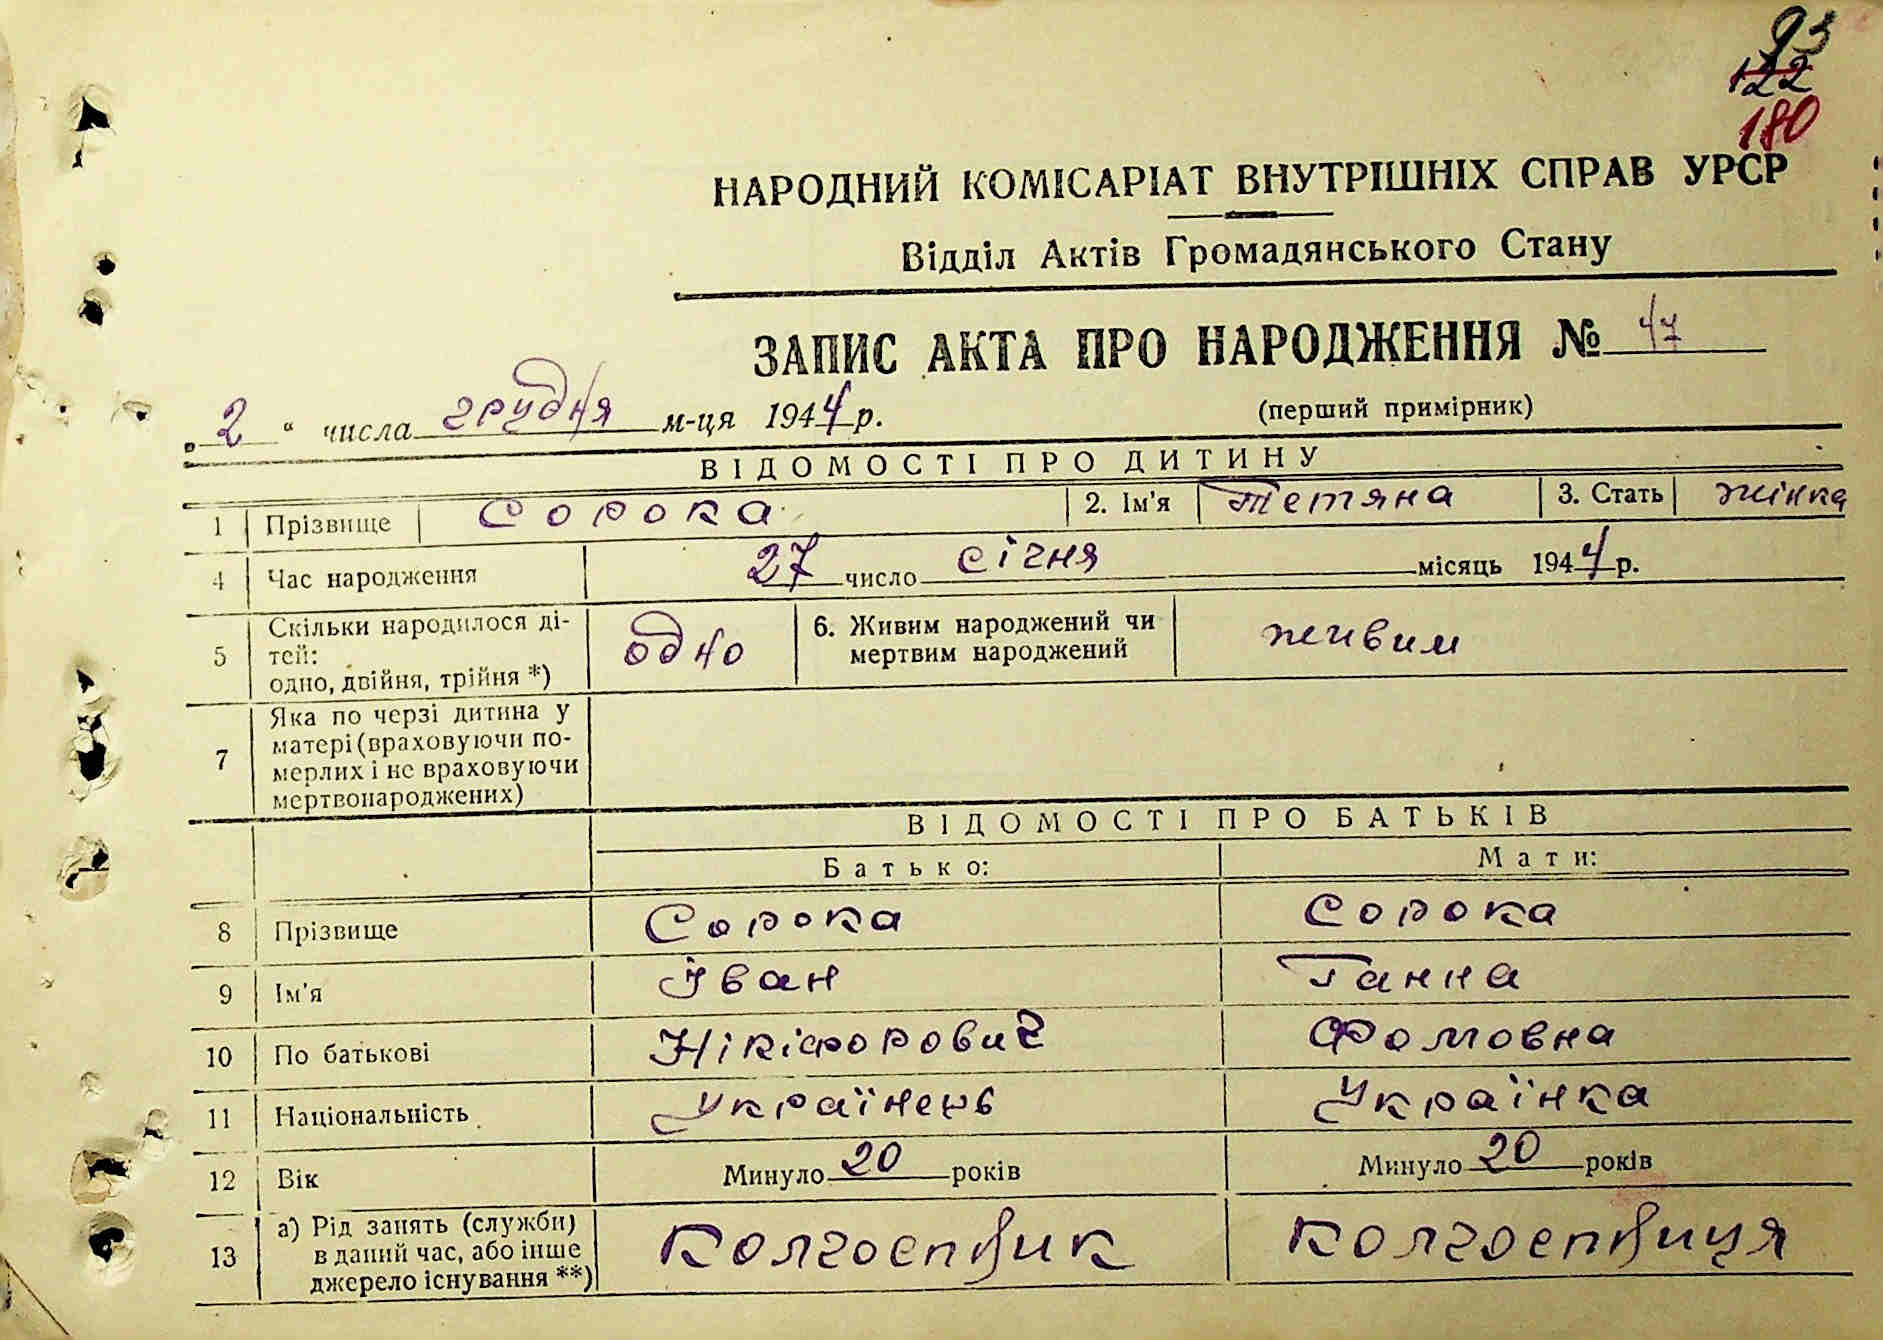 93
122
180
НАРОДНИЙ КОМІСАРІАТ ВНУТРІШНІХ СПРАВ УРСР
Відділ Актів Громадянського Стану
ЗАПИС АКТА ПРО НАРОДЖЕННЯ № 47
„2“ числа грудня м-ця 1944 р. (перший примірник)
ВІДОМОСТІ ПРО ДИТИНУ
1 Прізвище Сорока 2. Ім'я Тетяна 3. Стать жінка
4 Час народження 27 число січня місяць 1944 р.
5 Скільки народилося ді-
тей:
одно, двійня, трійня *) одно 6. Живим народжений чи
мертвим народжений живим
7 Яка по черзі дитина у
матері (враховуючи по-
мерлих і не враховуючи
мертвонароджених)
ВІДОМОСТІ ПРО БАТЬКІВ
Батько: Мати:
8 Прізвище Сорока Сорока
9 Ім'я Іван Ганна
10 По батькові Нікіфорович Фомовна
11 Національність Українець Українка
12 Вік Минуло 20 років Минуло 20 років
13 а) Рід занять (служби)
в даний час, або інше
джерело існування **) Колгоспник Колгоспниця